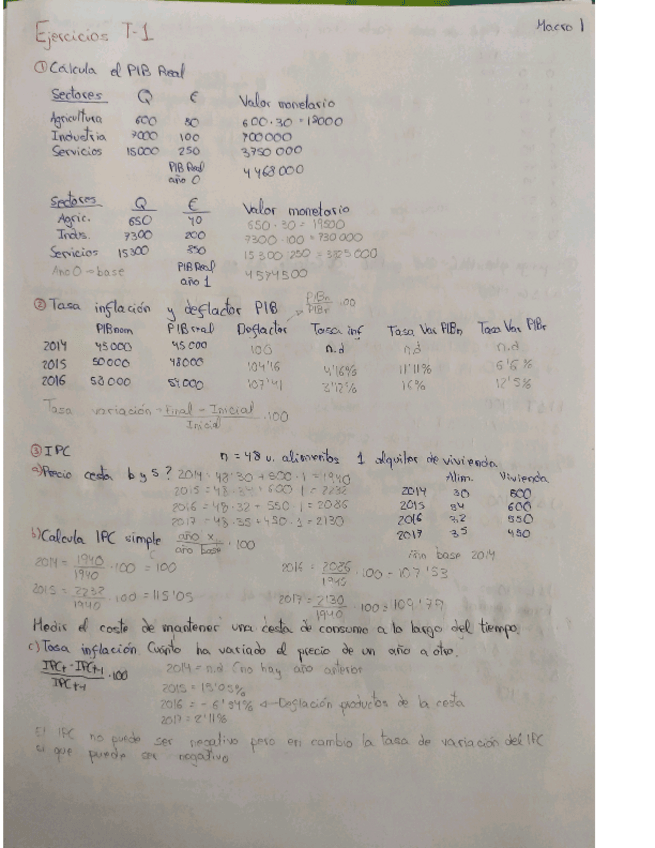 Macro 1
Ejercicios T-1
① Calcula el PIB Real
Sectores Q € Valor monetario
Agricultura 600 30 600·30 = 18000
Industria 7000 100 700000
Servicios 15000 250 3750 000
PIB Real año 0 4468000
Sectores Q € Valor monetario
Agric. 650 40 650·30 = 19500
Indus. 7300 200 7300·100 = 730000
Servicios 15300 350 15300·250 = 3825000
Año 0 → base PIB Real año 1 4574500
② Tasa inflación y deflactor PIB PIBn/PIBr ·100
PIBnom PIB real Deflactor Tasa inf Tasa Var PIBn Tasa Var PIBr
2014 45000 45000 100 n.d n.d n.d
2015 50000 48000 104'16 4'16% 11'11% 6'6%
2016 58000 54000 107'41 3'12% 16% 12'5%
Tasa variación = Final - Inicial / Inicial ·100
③ IPC n = 48 u. alimentos 1 alquiler de vivienda
a) Precio cesta b y s? 2014 = 48·30 + 500·1 = 1940
2015 = 48·34 + 600·1 = 2232
2016 = 48·32 + 550·1 = 2086
2017 = 48·35 + 450·1 = 2130
Alim. Vivienda
2014 30 500
2015 34 600
2016 32 550
2017 35 450
Año base 2014
b) Calcula IPC simple año x / año base ·100
2014 = 1940/1940 ·100 = 100
2016 = 2086/1940 ·100 = 107'53
2015 = 2232/1940 ·100 = 115'05
2017 = 2130/1940 ·100 = 109'79
Medir el coste de mantener una cesta de consumo a lo largo del tiempo.
c) Tasa inflación Cuánto ha variado el precio de un año a otro.
IPCt - IPCt-1 / IPCt-1 ·100
2014 = n.d (no hay año anterior
2015 = 15'05%
2016 = - 6'54% ← Deflación productos de la cesta
2017 = 2'11%
El IPC no puede ser negativo pero en cambio la tasa de variación del IPC
si que puede ser negativo